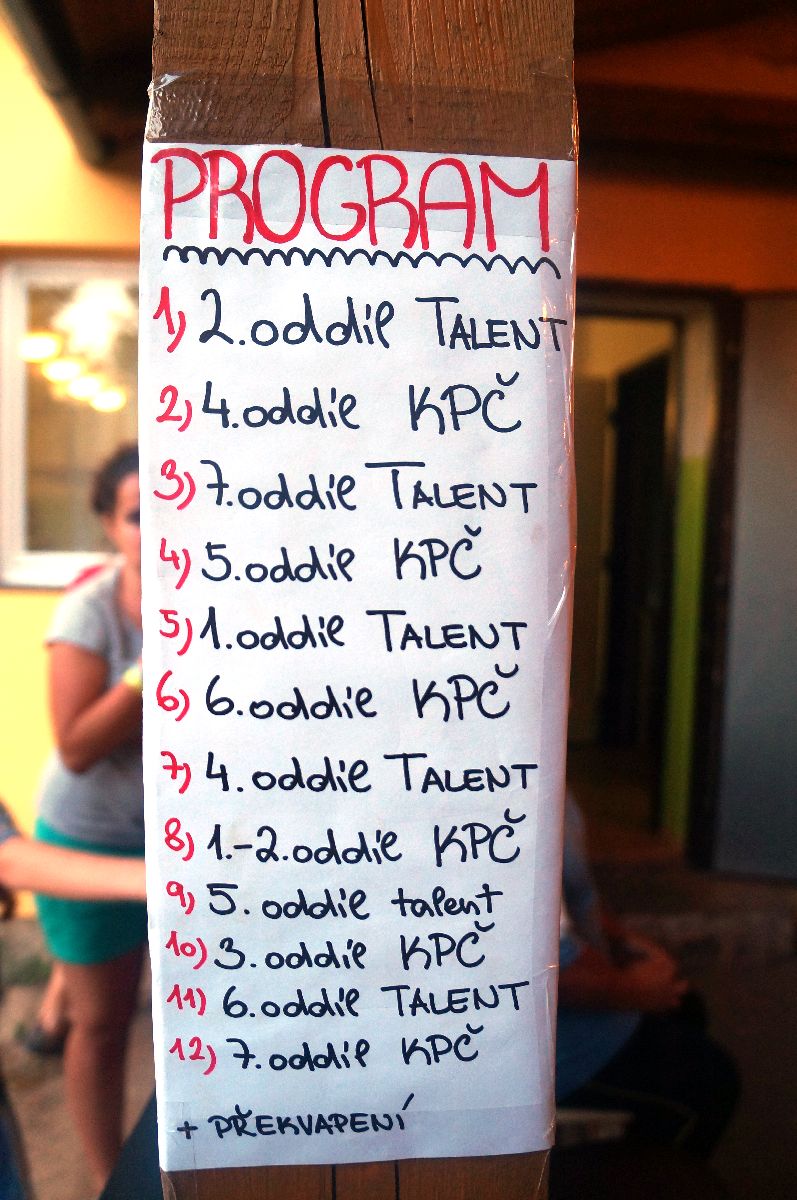 PROGRAM
1) 2.oddíl TALENT
2) 4.oddíl KPČ
3) 7.oddíl TALENT
4) 5.oddíl KPČ
5) 1.oddíl TALENT
6) 6.oddíl KPČ
7) 4.oddíl TALENT
8) 1.-2.oddíl KPČ
9) 5.oddíl talent
10) 3.oddíl KPČ
11) 6.oddíl TALENT
12) 7.oddíl KPČ
+ PŘEKVAPENÍ